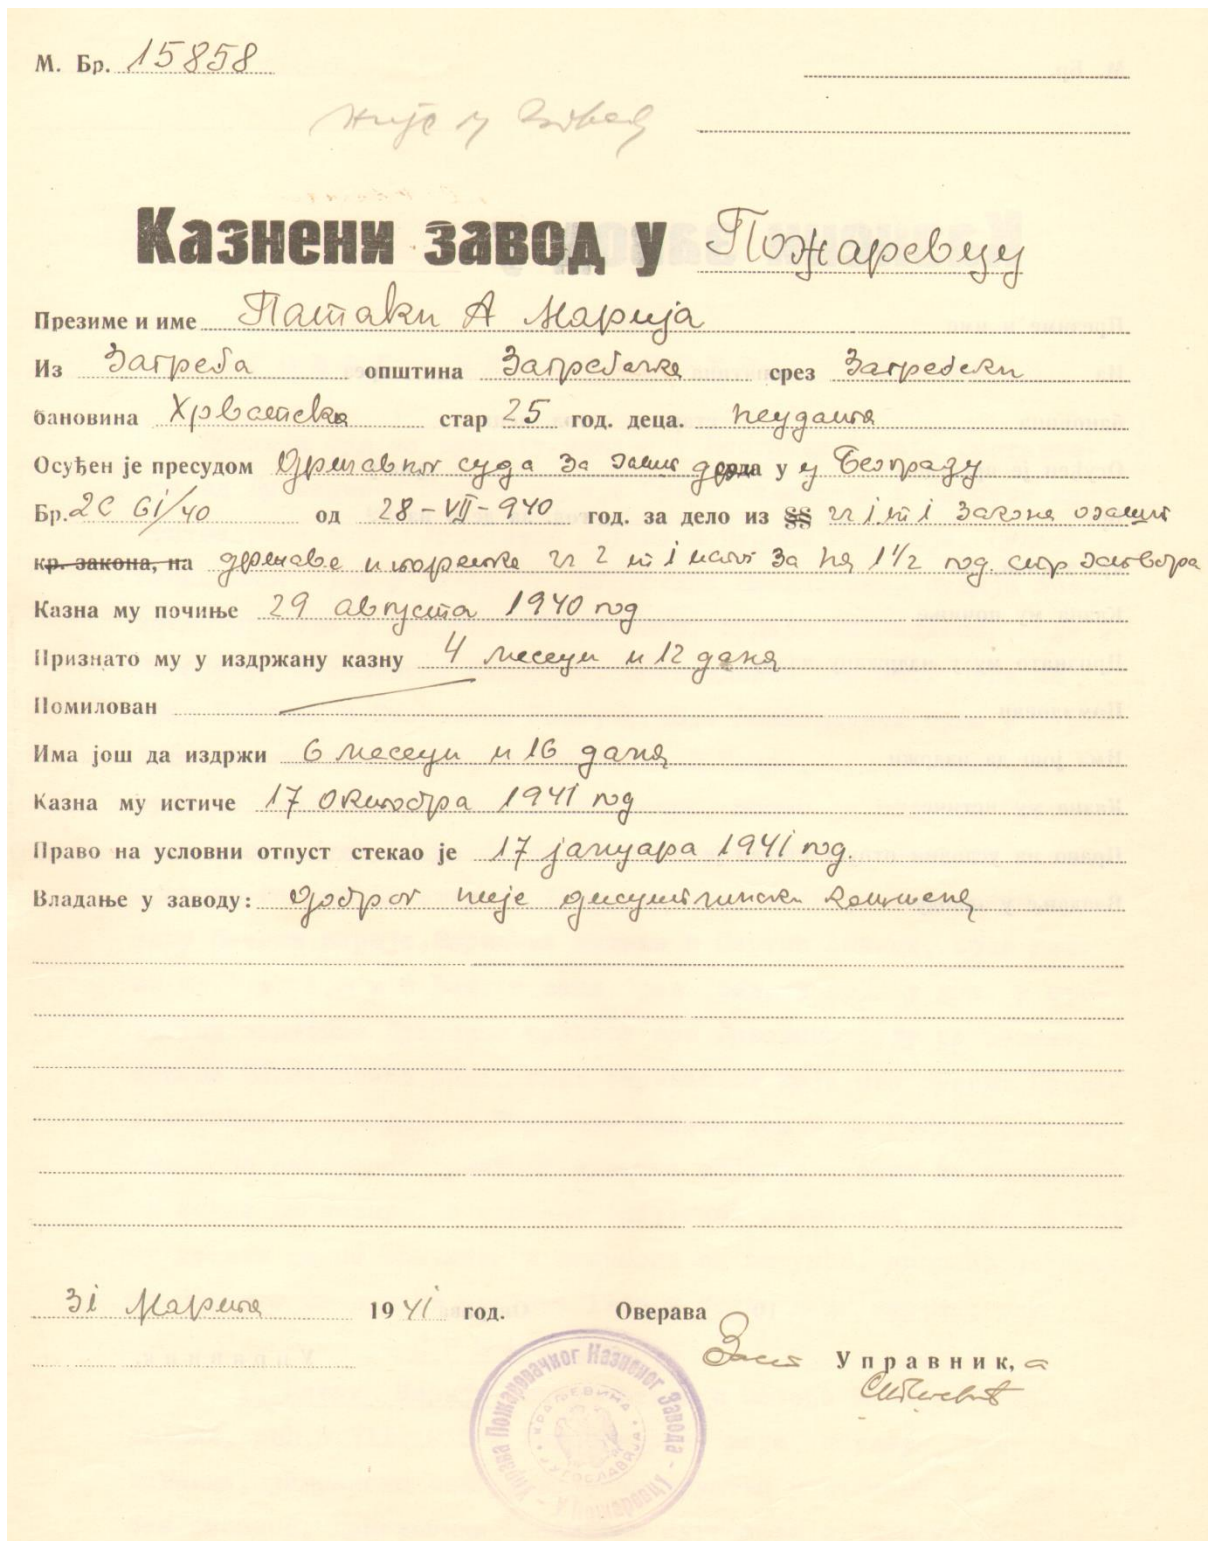 М. Бр. 15858
није у
Казнени завод у Пожаревцу
Презиме и име Патаки А Марија
Из Загреба општина Загребачка срез Загребски
бановина Хрватска стар 25 год. деца. неудата
Осуђен је пресудом Државног суда за зашт др у у Београду
Бр. 2С 61/40 од 28-VII-940 год. за дело из §§ чл 1 т 1 Закона о зашт
кр. закона, на државе и поретка чл 2 т 1 за на 1½ год. стр затвора
Казна му почиње 29 августа 1940 год
Признато му у издржану казну 4 месеци и 12 дана
Помилован
Има још да издржи 6 месеци и 16 дана
Казна му истиче 17 октобра 1941 год
Право на условни отпуст стекао је 17 јануара 1941 год.
Владање у заводу: доброг није дисциплински кажњена
31 Марта 1941 год. Оверава
Заст Управник, а
Управа Пожаревачког Казненог Завода -
КРАЉЕВИНА ЈУГОСЛАВИЈА